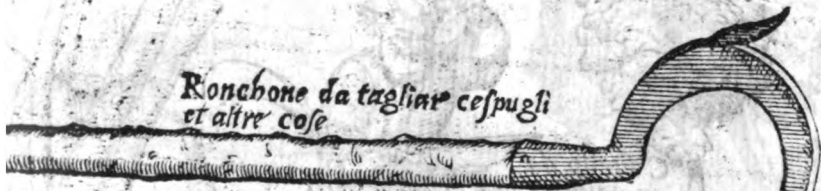 Ronchone da tagliar ceſpugli
et altre coſe